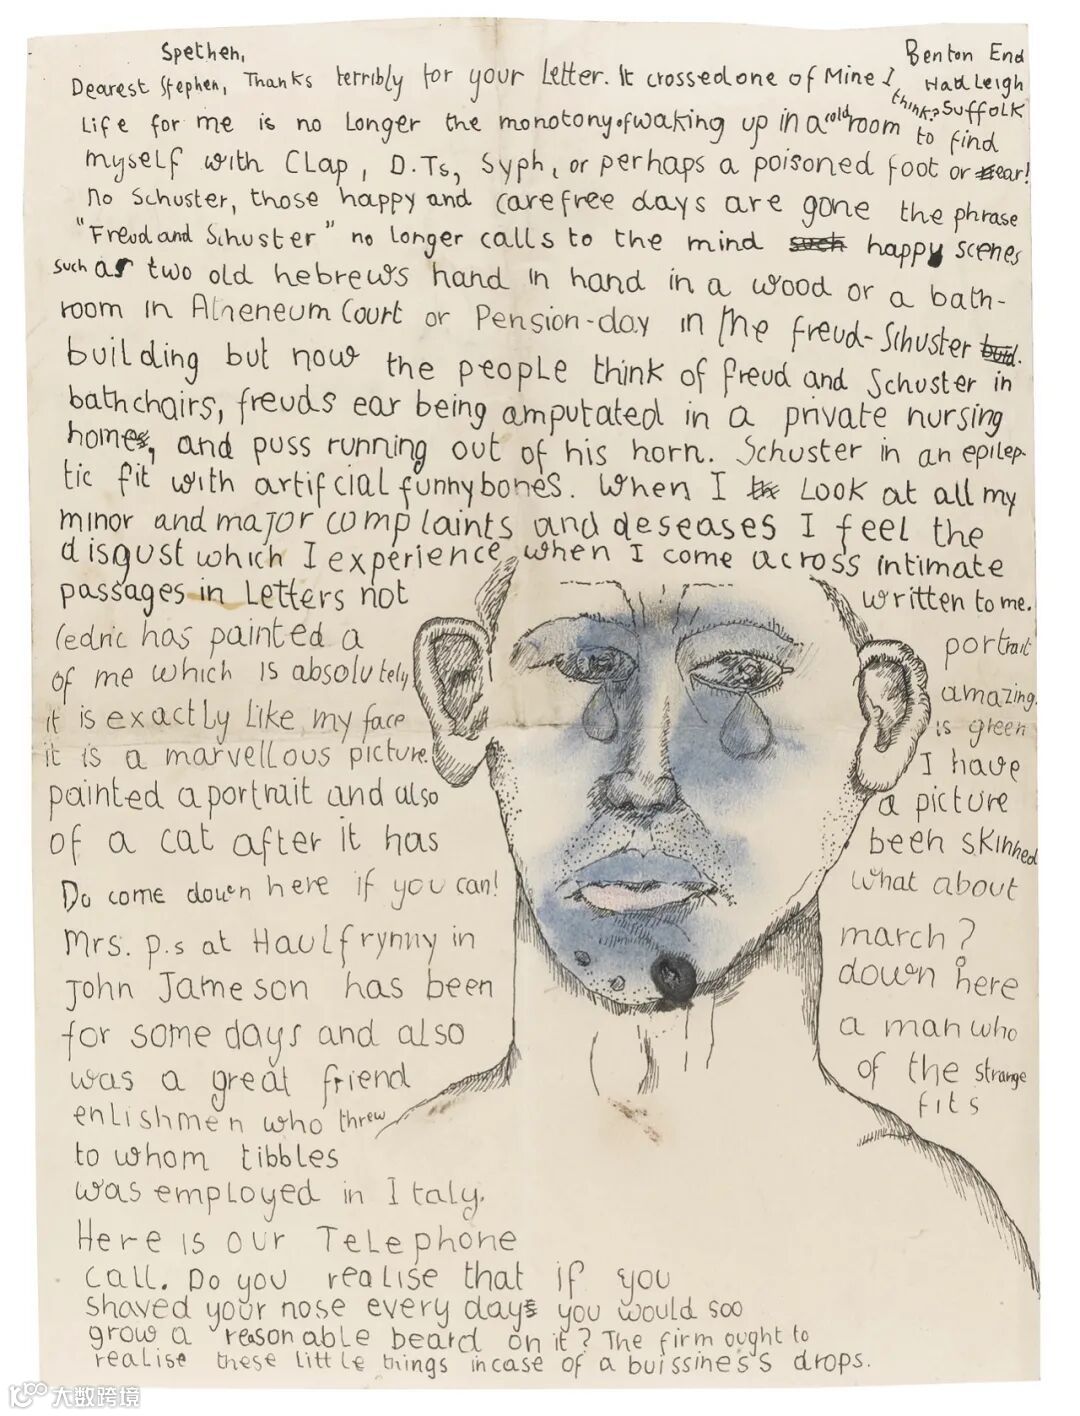 Spethen,
Benton End
Hadleigh
Suffolk
Dearest Stephen, Thanks terribly for your Letter. It crossed one of Mine I think?
Life for me is no Longer the monotony of waking up in a cold room to find
myself with Clap, D.Ts, Syph, or perhaps a poisoned foot or ear!
no Schuster, those happy and carefree days are gone the phrase
"Freud and Schuster" no longer calls to the mind such happy scenes
such as two old hebrews hand in hand in a wood or a bath-
room in Atheneum Court or Pension-day in the freud-Schuster buid.
building but now the people think of freud and Schuster in
bathchairs, freuds ear being amputated in a private nursing
home, and puss running out of his horn. Schuster in an epilep-
tic fit with artificial funnybones. When I Look at all my
minor and major complaints and deseases I feel the
disgust which I experience when I come across intimate
passages in Letters not written to me.
Cedric has painted a portrait
of me which is absolutely amazing.
it is exactly Like my face is green
it is a marvellous picture. I have
painted a portrait and also a picture
of a cat after it has been skinned
Do come down here if you can! what about
march?
Mrs. p.s at Haulfrynny in down here
John Jameson has been
for some days and also a man who
was a great friend of the strange
enlishmen who threw fits
to whom tibbles
was employed in Italy.
Here is our Telephone
call. Do you realise that if you
shaved your nose every day you would soo
grow a reasonable beard on it? The firm ought to
realise these little things incase of a buissiness drops.
大数跨境